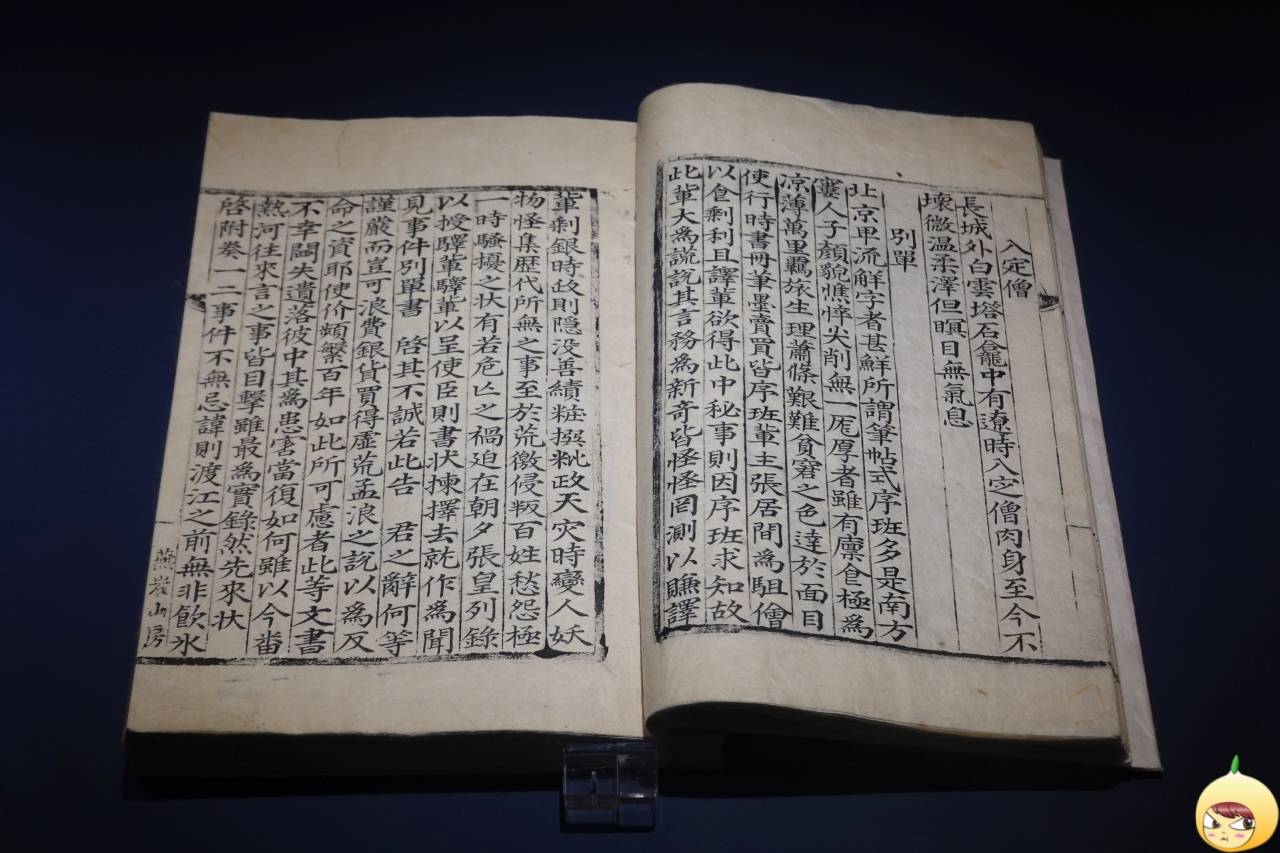 入定僧
長城外白雲塔石龕中有遼時入定僧肉身至今不
壞微温柔澤但瞑目無氣息
別單
北京甲流解字者甚鮮所謂筆帖式序班多是南方
窶人子顏貌憔悴尖削無一厖厚者雖有廩食極為
凉薄萬里羈旅生理蕭條艱難貧窘之色達於面目
使行時書冊筆墨賣買皆序班輩主張居間為駔儈
以食剩利且譯輩欲得此中秘事則因序班求知故
此輩大為謊說其言務為新奇皆怪怪罔測以賺譯
輩剩銀時政則隱没善績粧撰粃政天灾時變人妖
物怪集歷代所無之事至於荒徼侵叛百姓愁怨極
一時騷擾之状有若危亡之禍迫在朝夕張皇列錄
以授驛輩驛輩以呈使臣則書状揀擇去就作為聞
見事件別單書 啓其不誠若此告 君之辭何等
謹嚴而豈可浪費銀貨買得虛荒孟浪之說以為反
命之資耶使价頻繁百年如此所可慮者此等文書
不幸闕失遺落彼中其為患害當復如何雖以今番
熱河往來言之事皆目擊雖最為實錄然先來状
啓附奏一二事件不無忌諱則渡江之前無非飮氷
燕巖山房